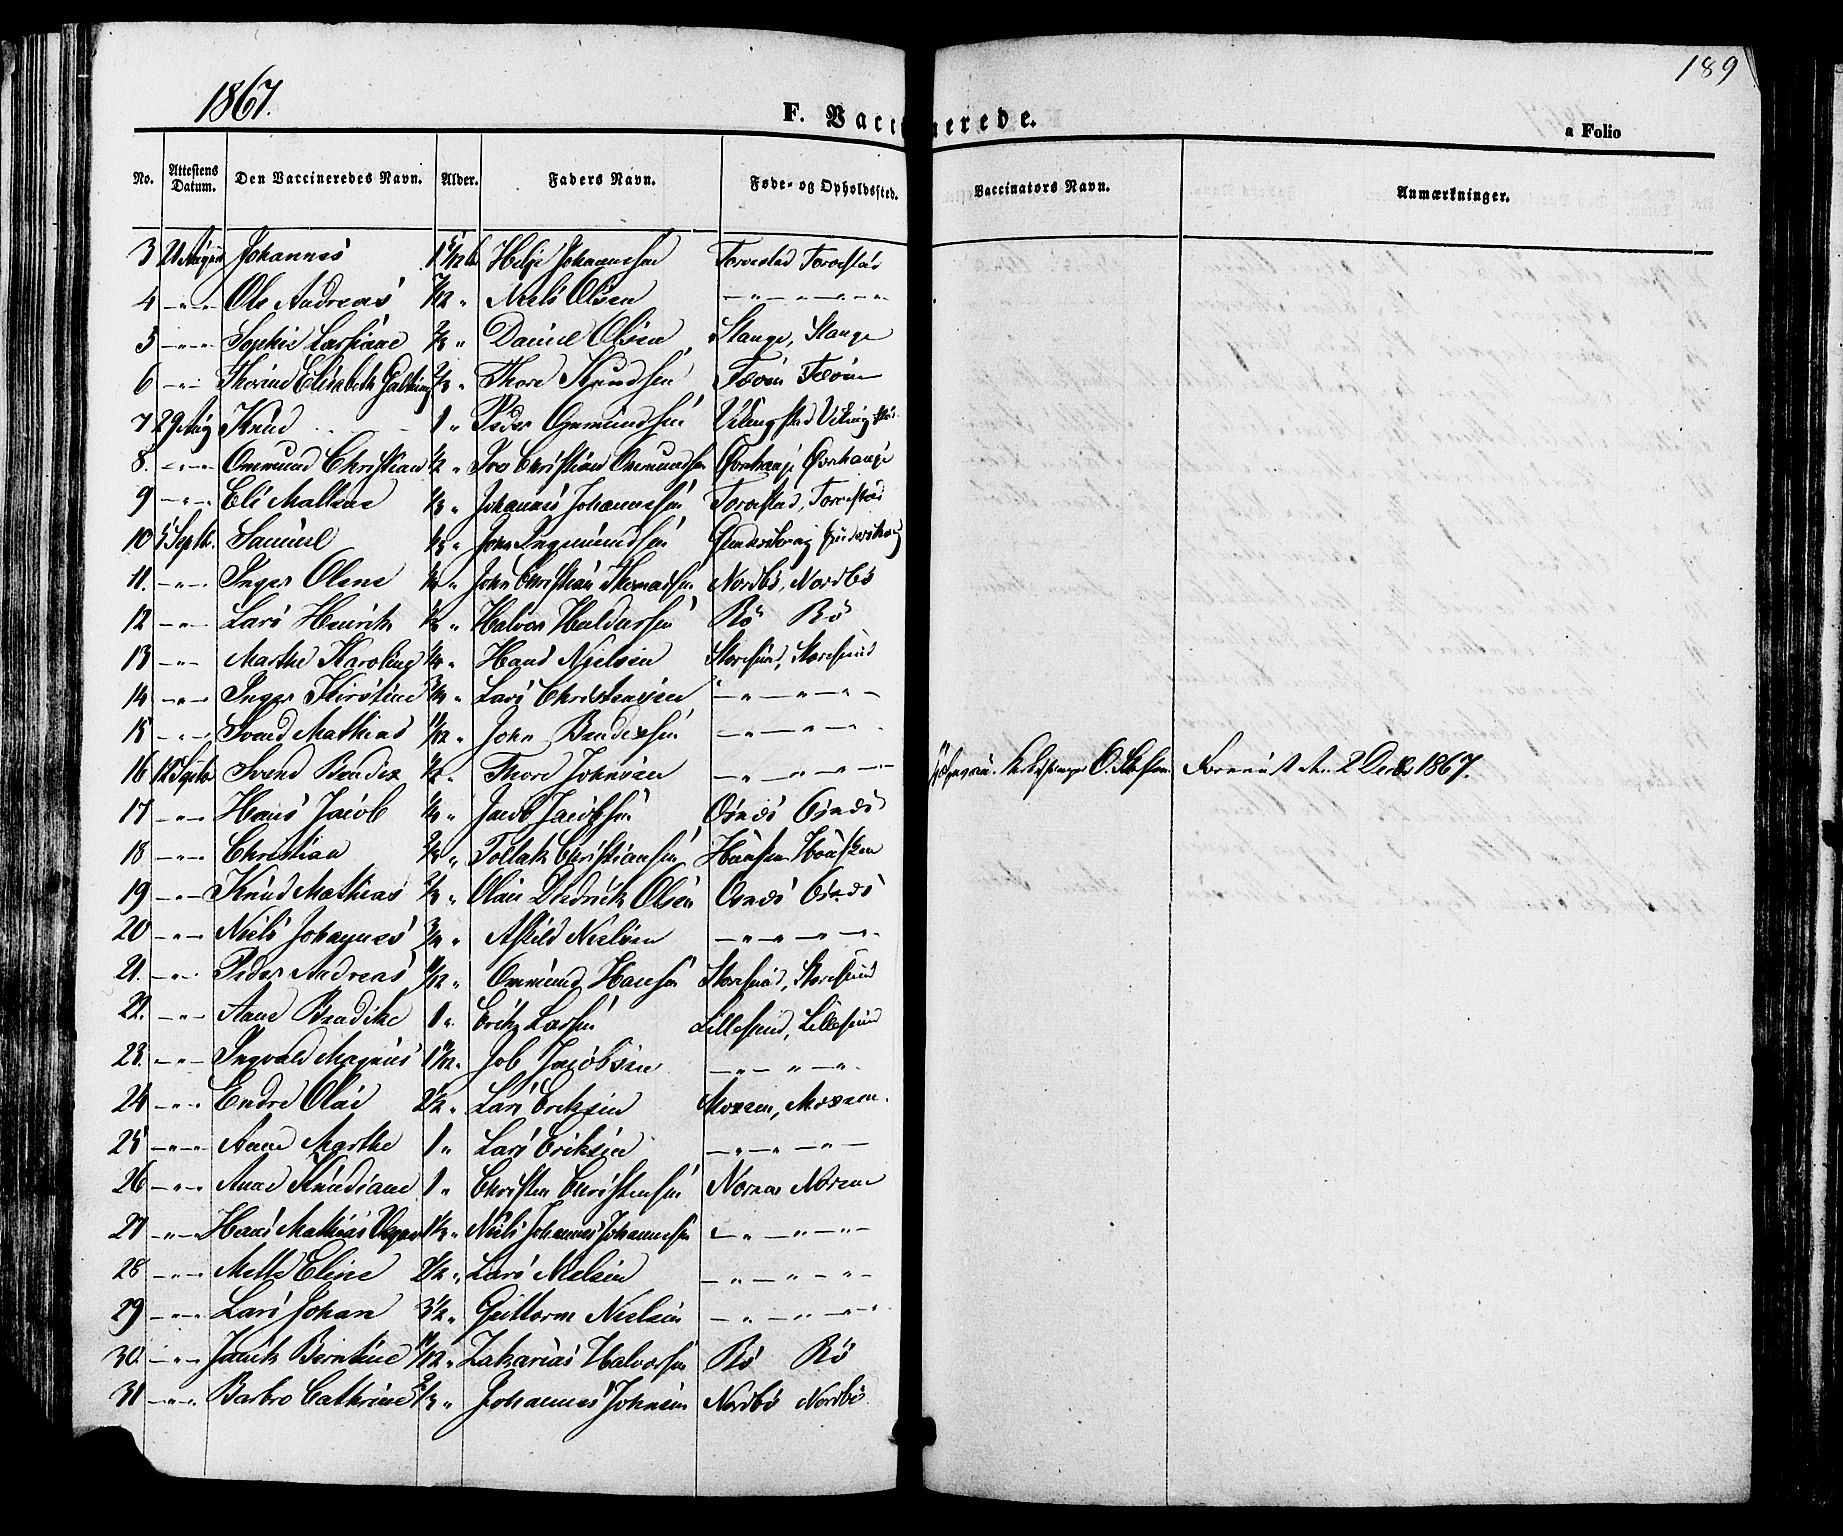 189
1867.
F. Vaccinerede.
a Folio
No. Attestens Datum. Den Vaccineredes Navn. Alder. Faders Navn. Føde- og Opholdssted. Vaccinators Navn. Anmærkninger.
3 Johannes Helge Johannesen Torvestad Torvestad
4 -"-"- Ole Andreas 7/12 " Niels Olsen -"-"-"-"
5 -"-"- Sophie 2/3 " Daniel Olsen Stange, Stange
6 -"-"- Thorine Elisabeth 2/3 " Thore Knudsen Fæøen Fæøen
7 29 Aug Knud 1 " Peder Ommundsen Vikingstad Vikingstad
8. -"-"- Ommund Christian 1/2 " Christian Ommundsen
9 -"-"- Eli Malene " Johannes Johannessen Torvestad, Torvestad
10 5 Septbr. Samuel " John Ingemundsen
11. -"-"- Inger Olene " John Christian Thomassen Nordbø, Nordbø
12 -"-"- Lars Henrik " Halvor Haldorsen Bø Bø
13 -"-"- Marthe Karoline " Hans Nielsen Storesund, Storesund
14 -"-"- Inger Kirstine 3/4 " Lars Christensen -"-"-"-
15 -"-"- Svend Mathias 11/12 " John Bendixsen -"-"-"-
16 12 Septbr Svend Bendix 1/2 " Thore Johnsen -"-"-"- O. 2 Decbr 1867.
17 -"-"- Hans Jacob " Jacob Jacobsen Osnæs Osnæs
18 -"-"- Christian 2/3 " Tollak Christiansen Hausken Hausken
19 -"-"- Knud Mathias 2/3 " Olai Diedrick Olsen Osnæs Osnæs
20 -"-"- Niels Johannes 3/4 " Nielsen -"-"-"-
21. -"-"- Peder Andreas 11/12 " Ommund Hansen Storesund, Storesund
22. -"-"- Anne Bendikte 1 " Erik Larsen Lillesund, Lillesund
23. -"-"- Ingvald Magnus Job Jacobsen -"-"-"-
24 -"-"- Endre Olai 2 1/2 " Lars Eriksen
25 -"-"- Anne Marthe 1 " Lars Eriksen -"-"-"-
26 -"-"- Anne Knudiane 1 " Christen Christensen
27 -"-"- Hans Mathias " Niels Johannes Johannessen -"-"-"-
28 -"-"- Mette Eline 2 1/2 " Lars Nielsen -"-"-"-
29 -"-"- Lars Johan 3 1/2 " Guttorm Nielsen -"-"-"-
30. -"-"- Berntine 11/12 " Zakarias Halvorsen Bø Bø
31 -"-"- Barbro Cathrine 2/3 " Johannes Johnsen Nordbø Nordbø